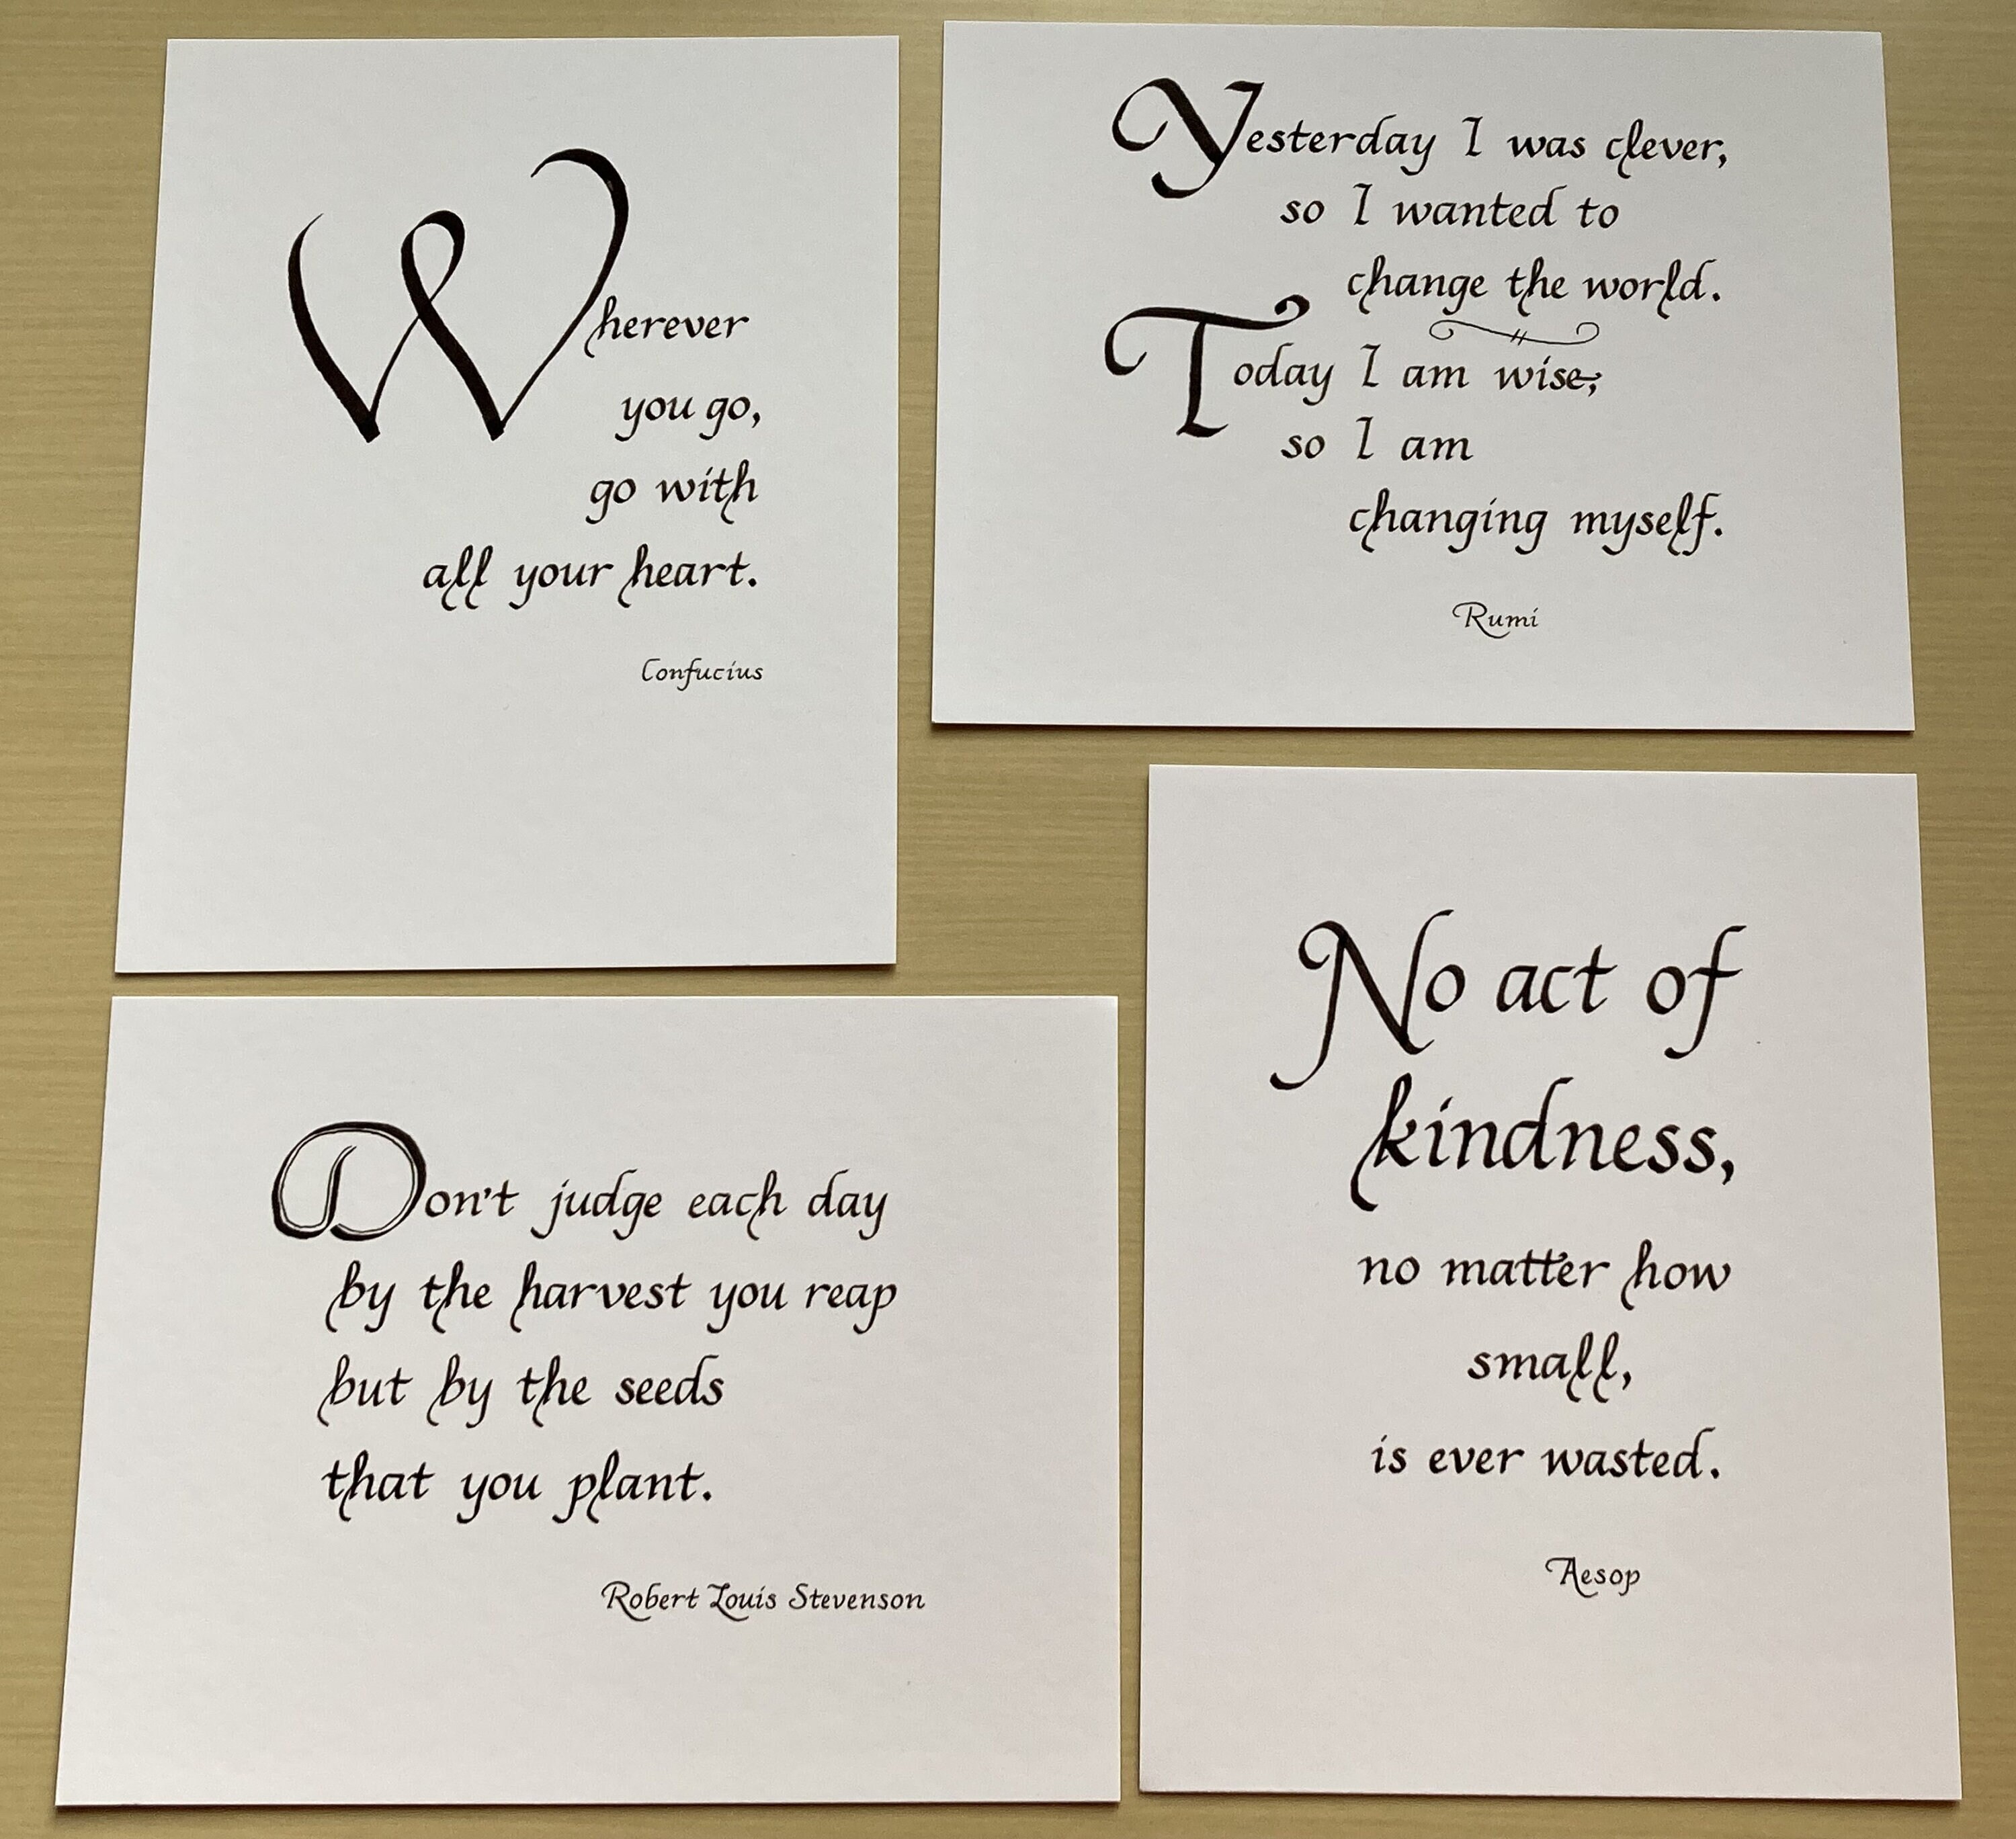 Wherever
you go,
go with
all your heart.
Confucius
Yesterday I was clever,
so I wanted to
change the world.
Today I am wise,
so I am
changing myself.
Rumi
Don't judge each day
by the harvest you reap
but by the seeds
that you plant.
Robert Louis Stevenson
No act of
kindness,
no matter how
small,
is ever wasted.
Aesop